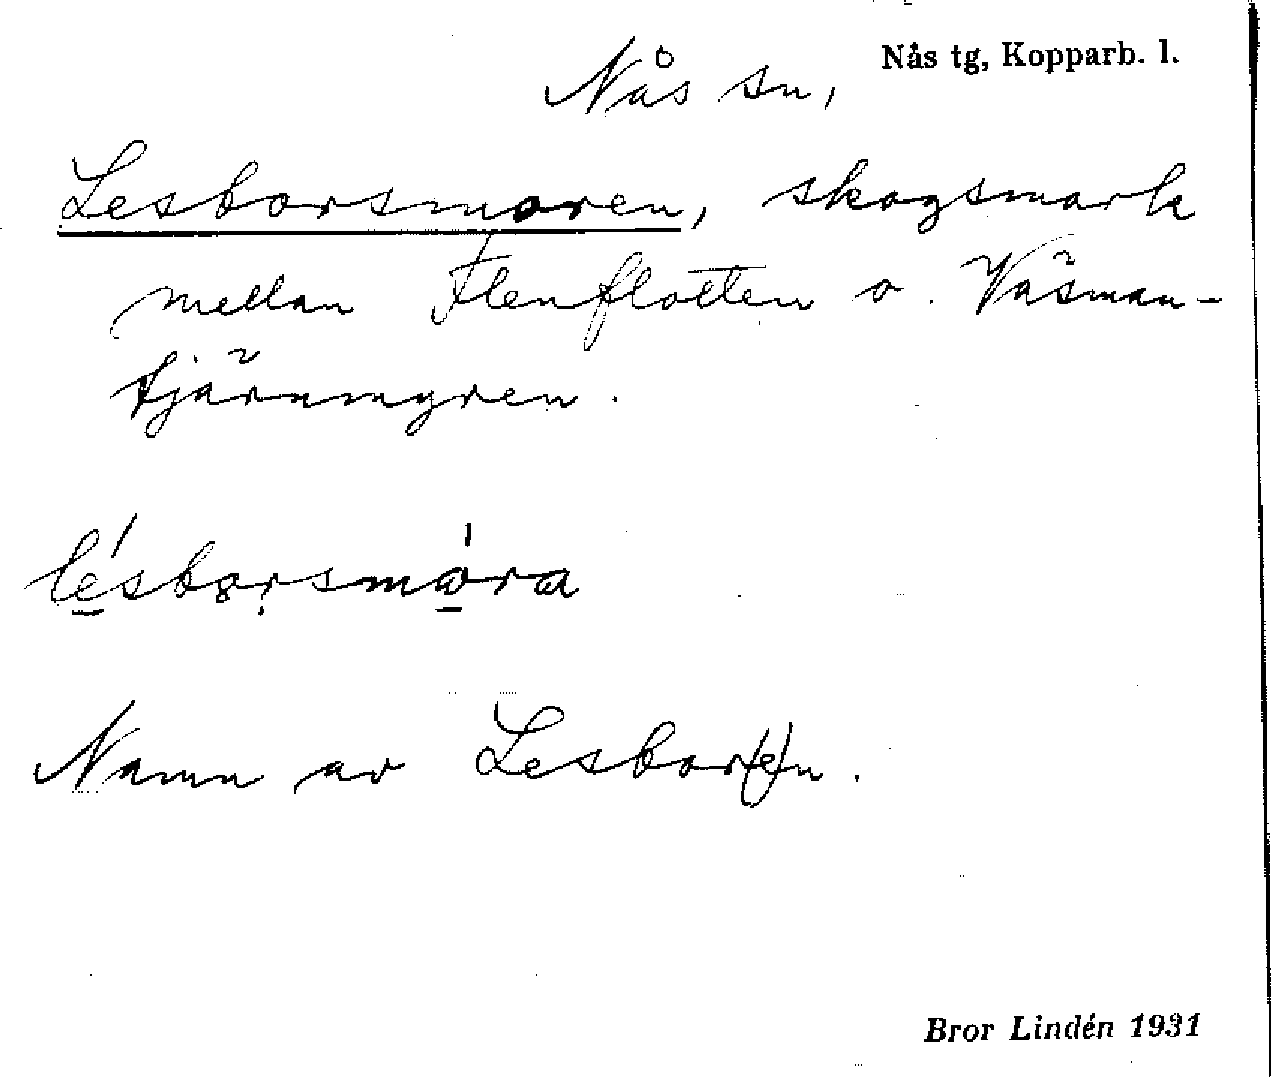 Nås tg, Kopparb. l.
Nås sn,
Lesborsmoren, skogsmark
mellan Flenflotten o. Väsman-
tjärnmyren.
lésborsmóra
Namn av Lesbor(e)n.
Bror Lindén 1931